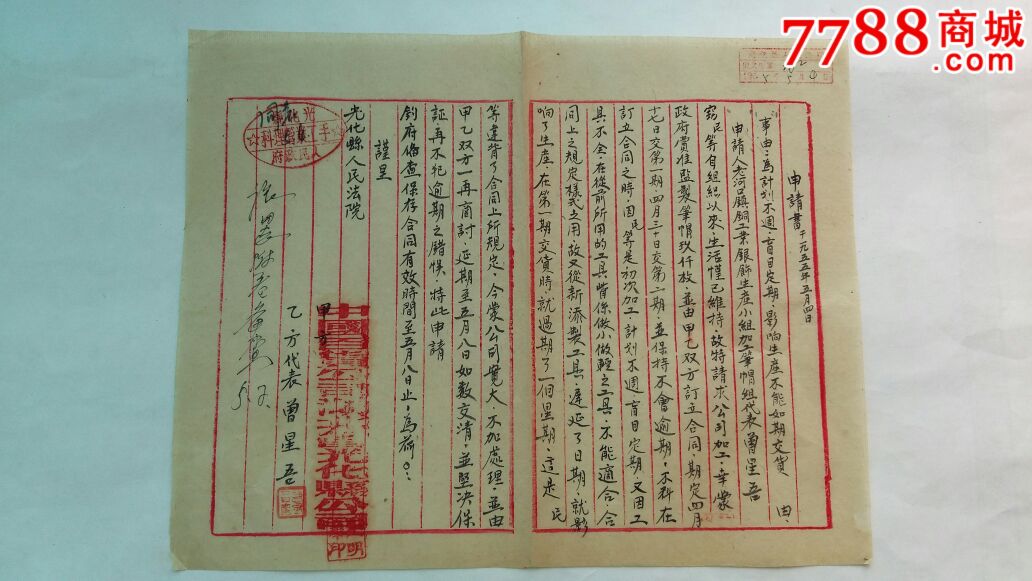 7788商城
.com
申請書 一九五五年五月四日
事由：為計划不週，盲目定期，影响生產不能如期交貨 由。
申請人老河口鎮銅工業銀飾生產小組加工筆帽組代表曾星吾
窃民等自組織以來，生活僅已維持，故特請求公司加工，幸蒙
政府賈准監製筆帽玖仟枚，並由甲乙双方訂立合同，期定四月
十七日交第一期，四月三十日交第二期，並保持不會逾期，不料在
訂立合同之時，因民等是初次加工計划不週盲目定期，又因工
具不全，在從前所用的工具，皆係做小做輕之工具，不能適合合
同上之規定樣式之用，故又從新添製工具，遲延了日期，就影
响了生產，在第一期交貨時，就過期了一個星期，這是民
等違背了合同上所規定，今蒙公司寬大，不加處理，並由
甲乙双方一再商討，延期至五月八日如数交清，並堅决保
証，再不犯逾期之錯悞，特此申請
鈞府俻查保存合同有效時間至五月八日止，為荷。
謹呈
光化縣人民法院
甲方
中國百貨公司湖北省光化縣公司
乙方代表 曾星吾